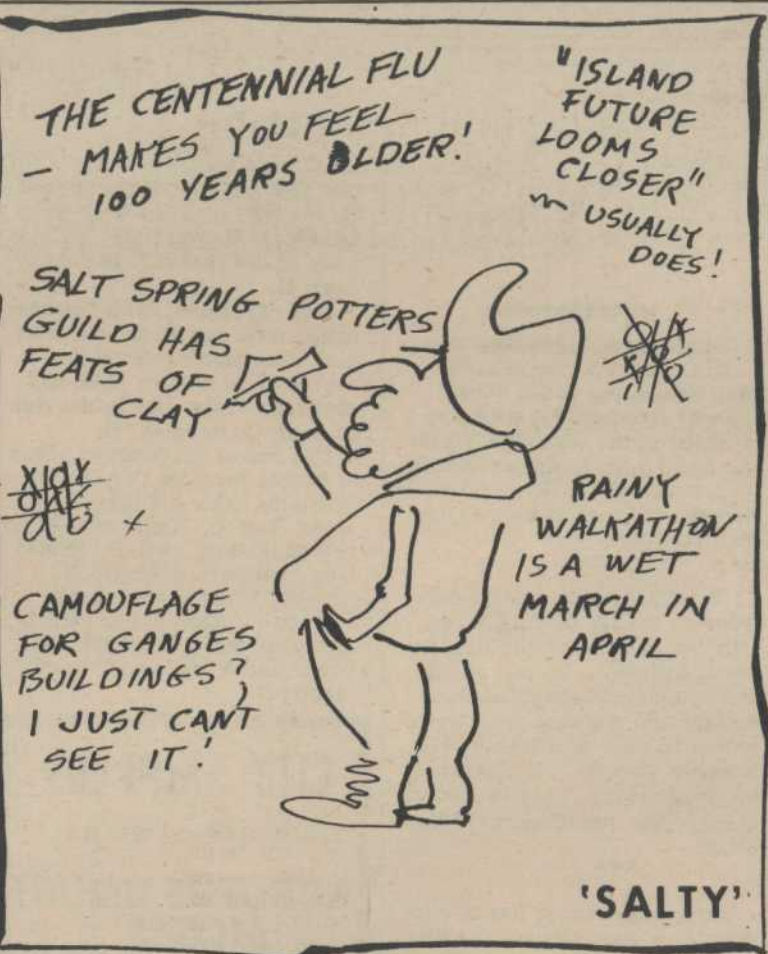 THE CENTENNIAL FLU
— MAKES YOU FEEL
100 YEARS OLDER!
"ISLAND
FUTURE
LOOMS
CLOSER"
~ USUALLY
DOES!
SALT SPRING POTTERS
GUILD HAS
FEATS OF
CLAY
RAINY
WALKATHON
IS A WET
MARCH IN
APRIL
CAMOUFLAGE
FOR GANGES
BUILDINGS?
I JUST CAN'T
SEE IT!
'SALTY'